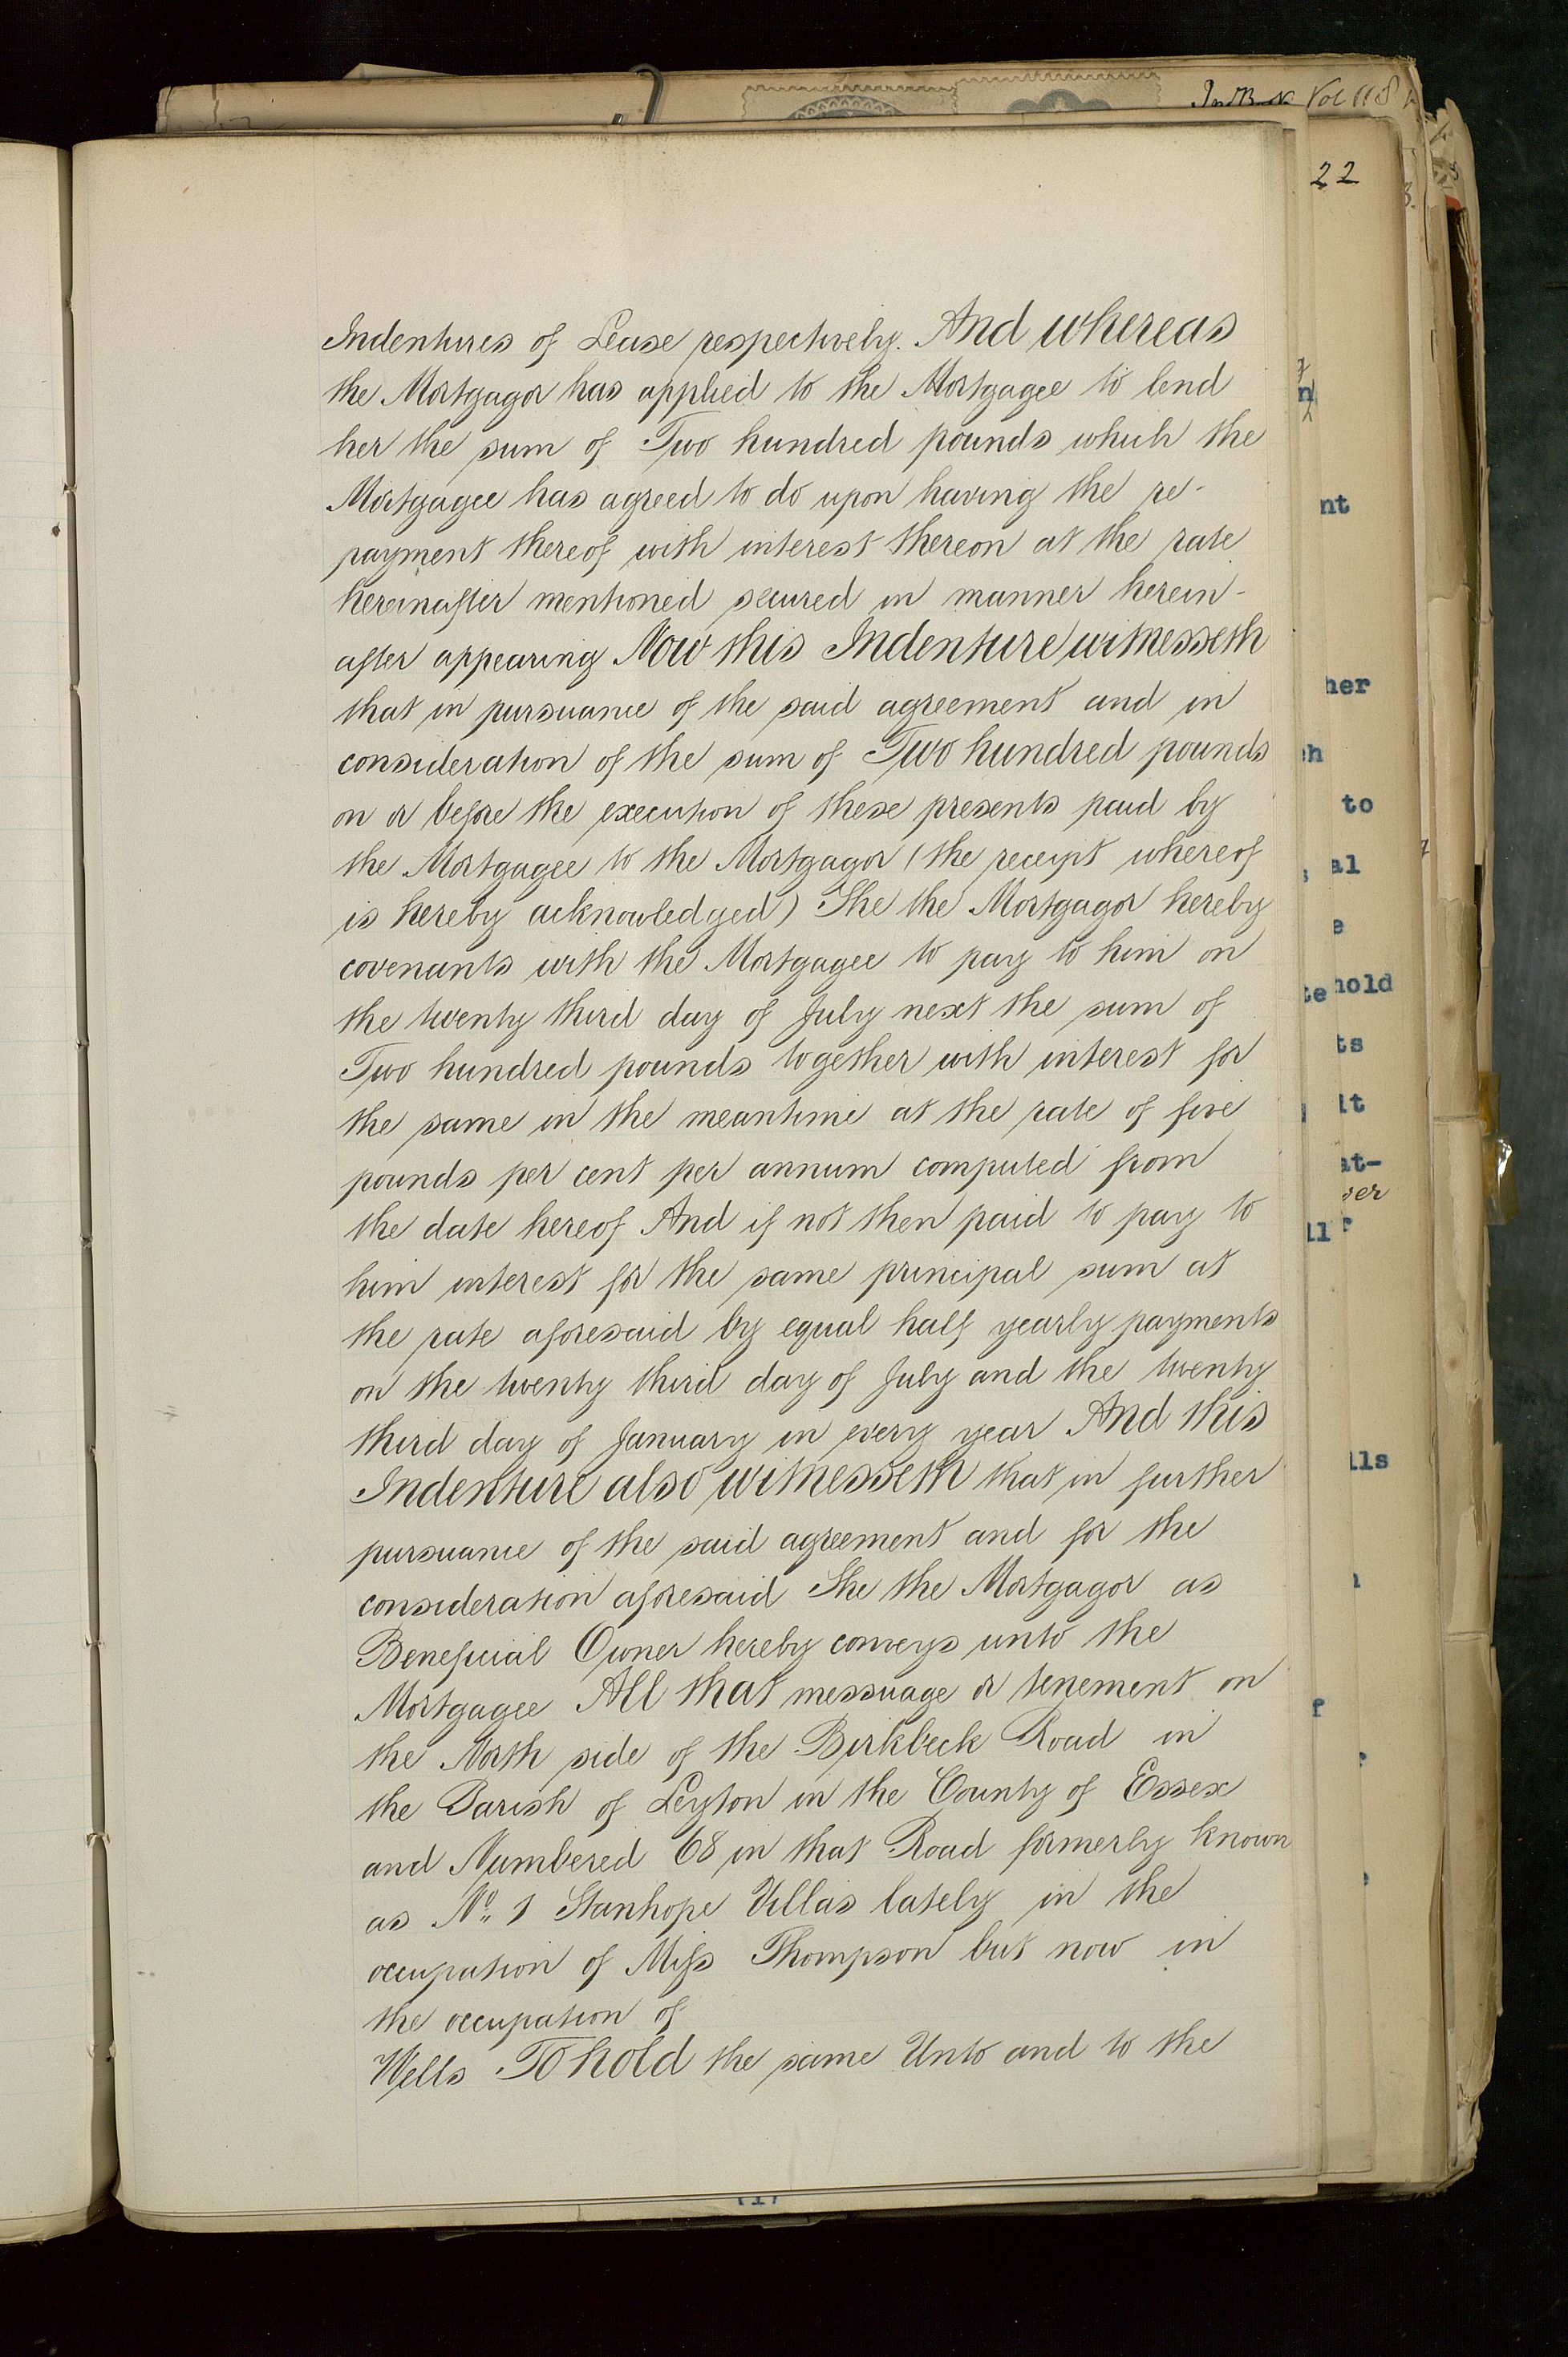 Vol 118
22
Indentures of Lease respectively. And whereas
the Mortgagor has applied to the Mortgagee to lend
her the sum of Two hundred pounds which the
Mortgagee has agreed to do upon having the re-
payment thereof with interest thereon at the rate
hereinafter mentioned secured in manner herein-
after appearing Now this Indenture witnesseth
that in pursuance of the said agreement and in
consideration of the sum of Two hundred pounds
on or before the execution of these presents paid by
the Mortgagee to the Mortgagor (the receipt whereof
is hereby acknowledged) She the Mortgagor hereby
covenants with the Mortgagee to pay to him on
the twenty third day of July next the sum of
Two hundred pounds together with interest for
the same in the meantime at the rate of five
pounds per cent per annum computed from
the date hereof And if not then paid to pay to
him interest for the same principal sum at
the rate aforesaid by equal half yearly payments
on the twenty third day of July and the twenty
third day of January in every year And this
Indenture also witnesseth that in further
pursuance of the said agreement and for the
consideration aforesaid She the Mortgagor as
Beneficial Owner hereby conveys unto the
Mortgagee All that messuage or tenement on
the North side of the Birkbeck Road in
the Parish of Leyton in the County of Essex
and Numbered 68 in that Road formerly known
as No. 1 Stanhope Villas lately in the
occupation of Miss Thompson but now in
the occupation of
Wells To hold the same Unto and to the
nt
her
to
al
e
hold
ts
it
at-
lls